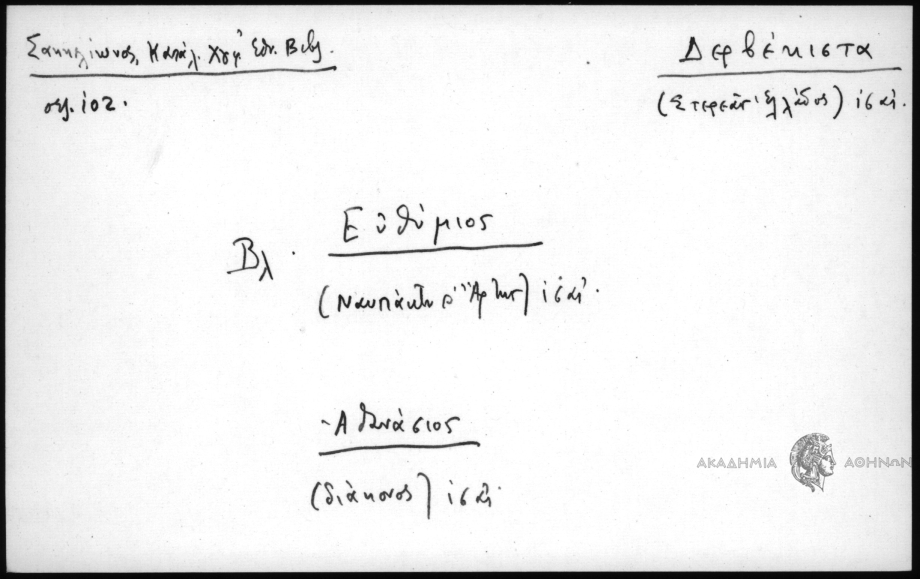 Σακκελίωνος, Κατάλ. Χγφ Εθν. Βιβλ.
σελ. 102.
Δερβέκιστα
(Στερεᾶς Ἑλλάδος) ις αἰ.
Βλ. Εὐθύμιος
(Ναυπάκτου & Ἄρτης) ις αἰ.
Ἀθανάσιος
(διάκονος) ις αἰ
ΑΚΑΔΗΜΙΑ ΑΘΗΝΩΝ